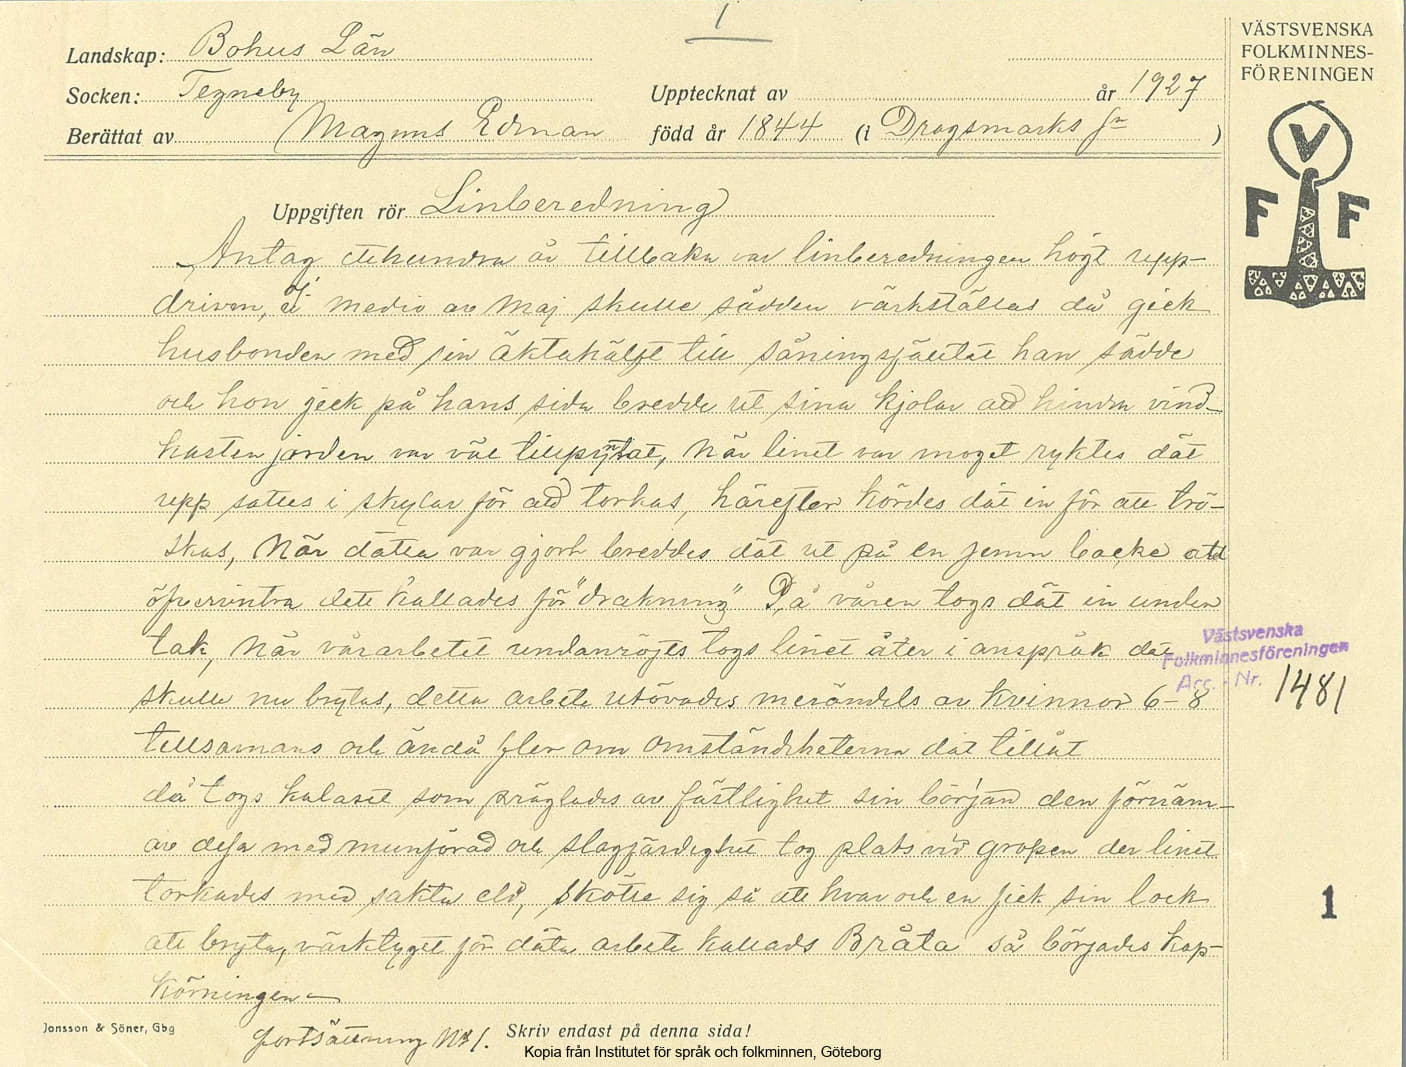 1
Landskap: Bohus Län
Socken: Tegneby
Upptecknat av år 1927
Berättat av Magnus Edman född år 1844 (i Dragsmarks sn )
VÄSTSVENSKA
FOLKMINNES-
FÖRENINGEN
V
F F
Uppgiften rör Linberedning
Antag etthundra år tillbaka var linberedningen högt upp-
driven, i medio av Maj skulle sådden värkställas då gick
husbonden med sin äktahälft till såningsfältet han sådde
och hon gick på hans sida bredde ut sina kjolar att hindra vind-
kasten jorden var väl tillpyntat, När linet var moget ryktes dät
upp sattes i skylar för att torkas, härefter kördes dät in för att trö-
skas, När dätta var gjort breddes dät ut på en jemn backe att
öfvervintra dett kallades för "drakning" På våren togs dät in under
tak, När vårarbetet undanröjts togs linet åter i anspråk dät
skulle nu brytas, detta arbete utövades merändels av kvinnor 6-8
tillsamans och ändå fler om omständiheterna dät tillåt
då togs kalaset som präglades av fästlighet sin början den förnäm-
av dessa med munföråd och slagfärdighet tog plats vid gropen der linet
torkades med sakta eld, skötte sig så att hvar och en fick sin lock
att bryta, värktyget för dätta arbete kallads Bråta så börjades kap-
körningen
Västsvenska
Folkminnesföreningen
Acc. - Nr. 1481
1
Jonsson & Söner, Gbg
fortsättning No 1.
Skriv endast på denna sida!
Kopia från Institutet för språk och folkminnen, Göteborg